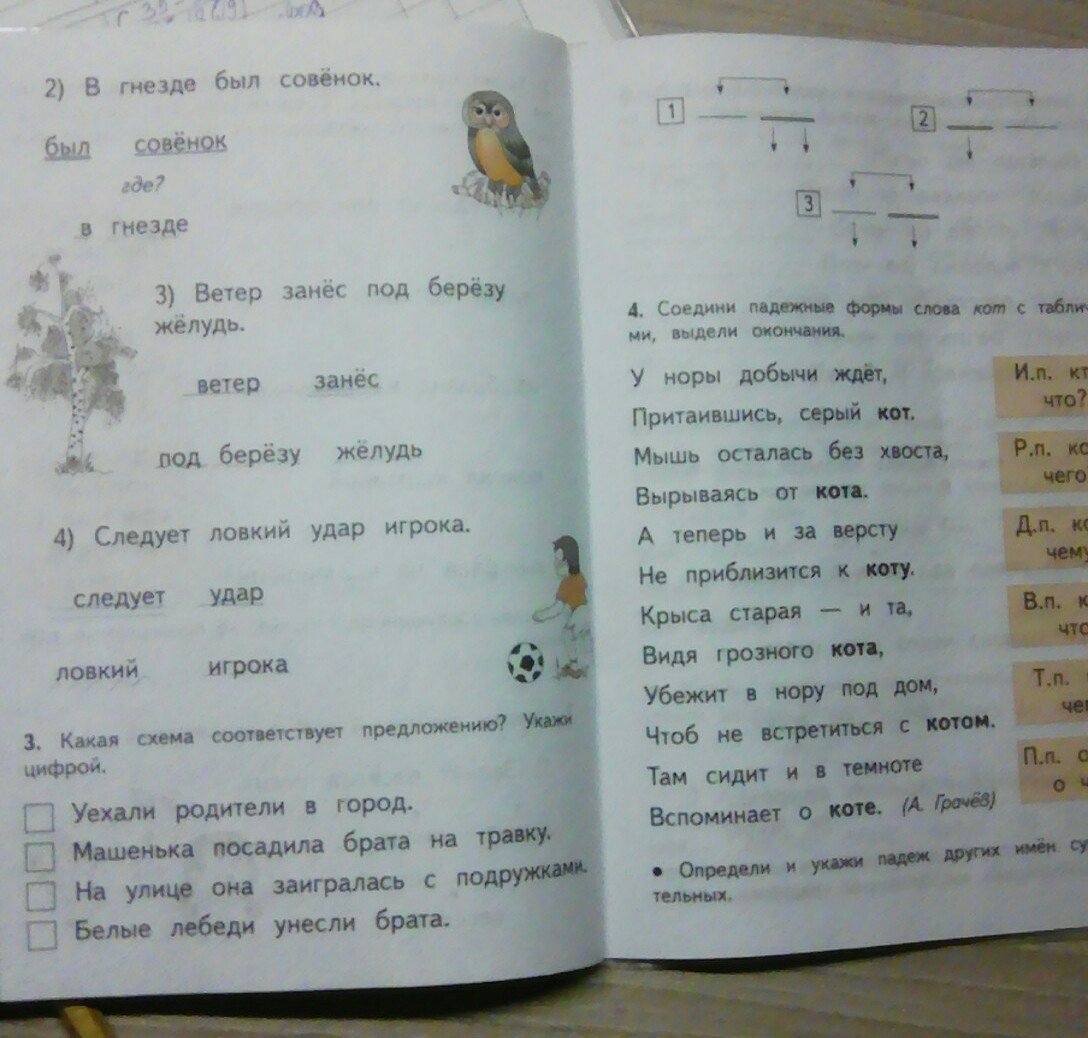 2) В гнезде был совёнок.
был совёнок
где?
в гнезде
3) Ветер занёс под берёзу
жёлудь.
ветер занёс
под берёзу жёлудь
4) Следует ловкий удар игрока.
следует удар
ловкий игрока
3. Какая схема соответствует предложению? Укажи
цифрой.
Уехали родители в город.
Машенька посадила брата на травку.
На улице она заигралась с подружками.
Белые лебеди унесли брата.
1
2
3
4. Соедини падежные формы слова кот с таблич
ми, выдели окончания.
У норы добычи ждёт,
Притаившись, серый кот.
Мышь осталась без хвоста,
Вырываясь от кота.
А теперь и за версту
Не приблизится к коту.
Крыса старая — и та,
Видя грозного кота,
Убежит в нору под дом,
Чтоб не встретиться с котом.
Там сидит и в темноте
Вспоминает о коте. (А. Грачёв)
И.п. кт
что?
Р.п. ко
чего
Д.п. ко
чему
В.п. к
что
Т.п.
чем
П.п. о
о ч
• Определи и укажи падеж других имён су
тельных.